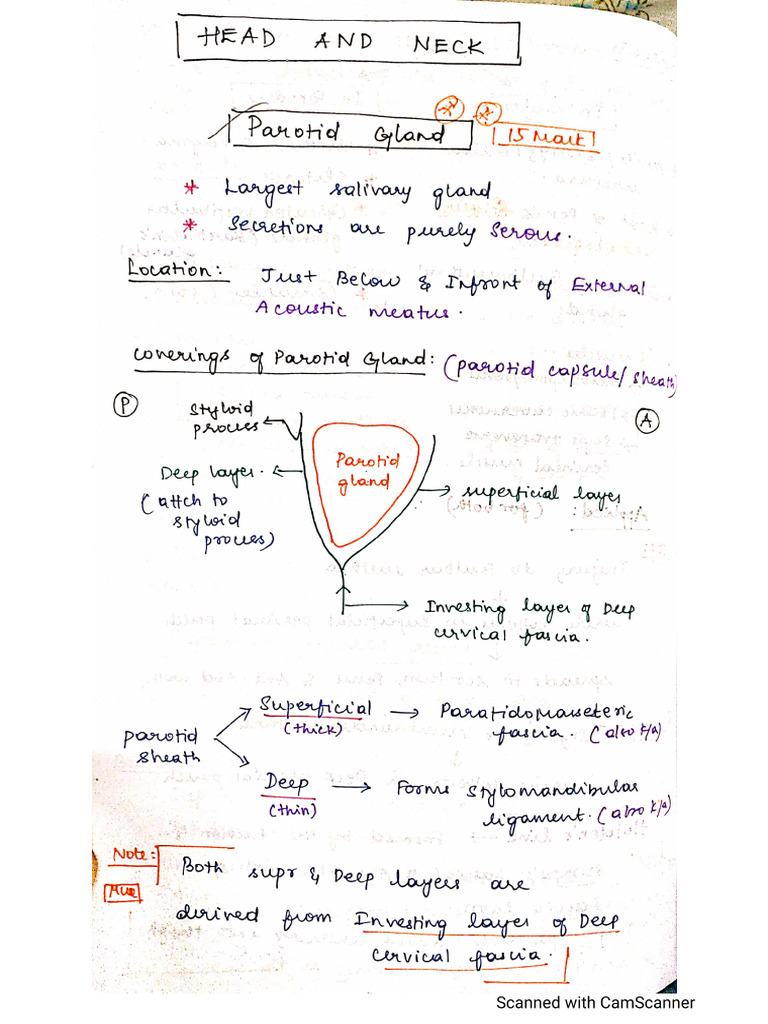 HEAD AND NECK
Parotid Gland
15 Mark
* Largest salivary gland
* Secretions are purely Serous.
Location: Just Below & Infront of External
Acoustic meatus.
Coverings of Parotid Gland: (parotid capsule/sheath)
P
A
Styloid
process
Parotid
gland
Deep layer.
(attch to
styloid
process)
superficial layer
Investing layer of Deep
cervical fascia.
parotid
sheath
Superficial → Paratidomasseteric
(thick) fascia. (also k/a)
Deep → Forms Stylomandibular
(thin) ligament. (also k/a)
Note:
Both supr & Deep layers are
derived from Investing layer of Deep
cervical fascia.
Scanned with CamScanner